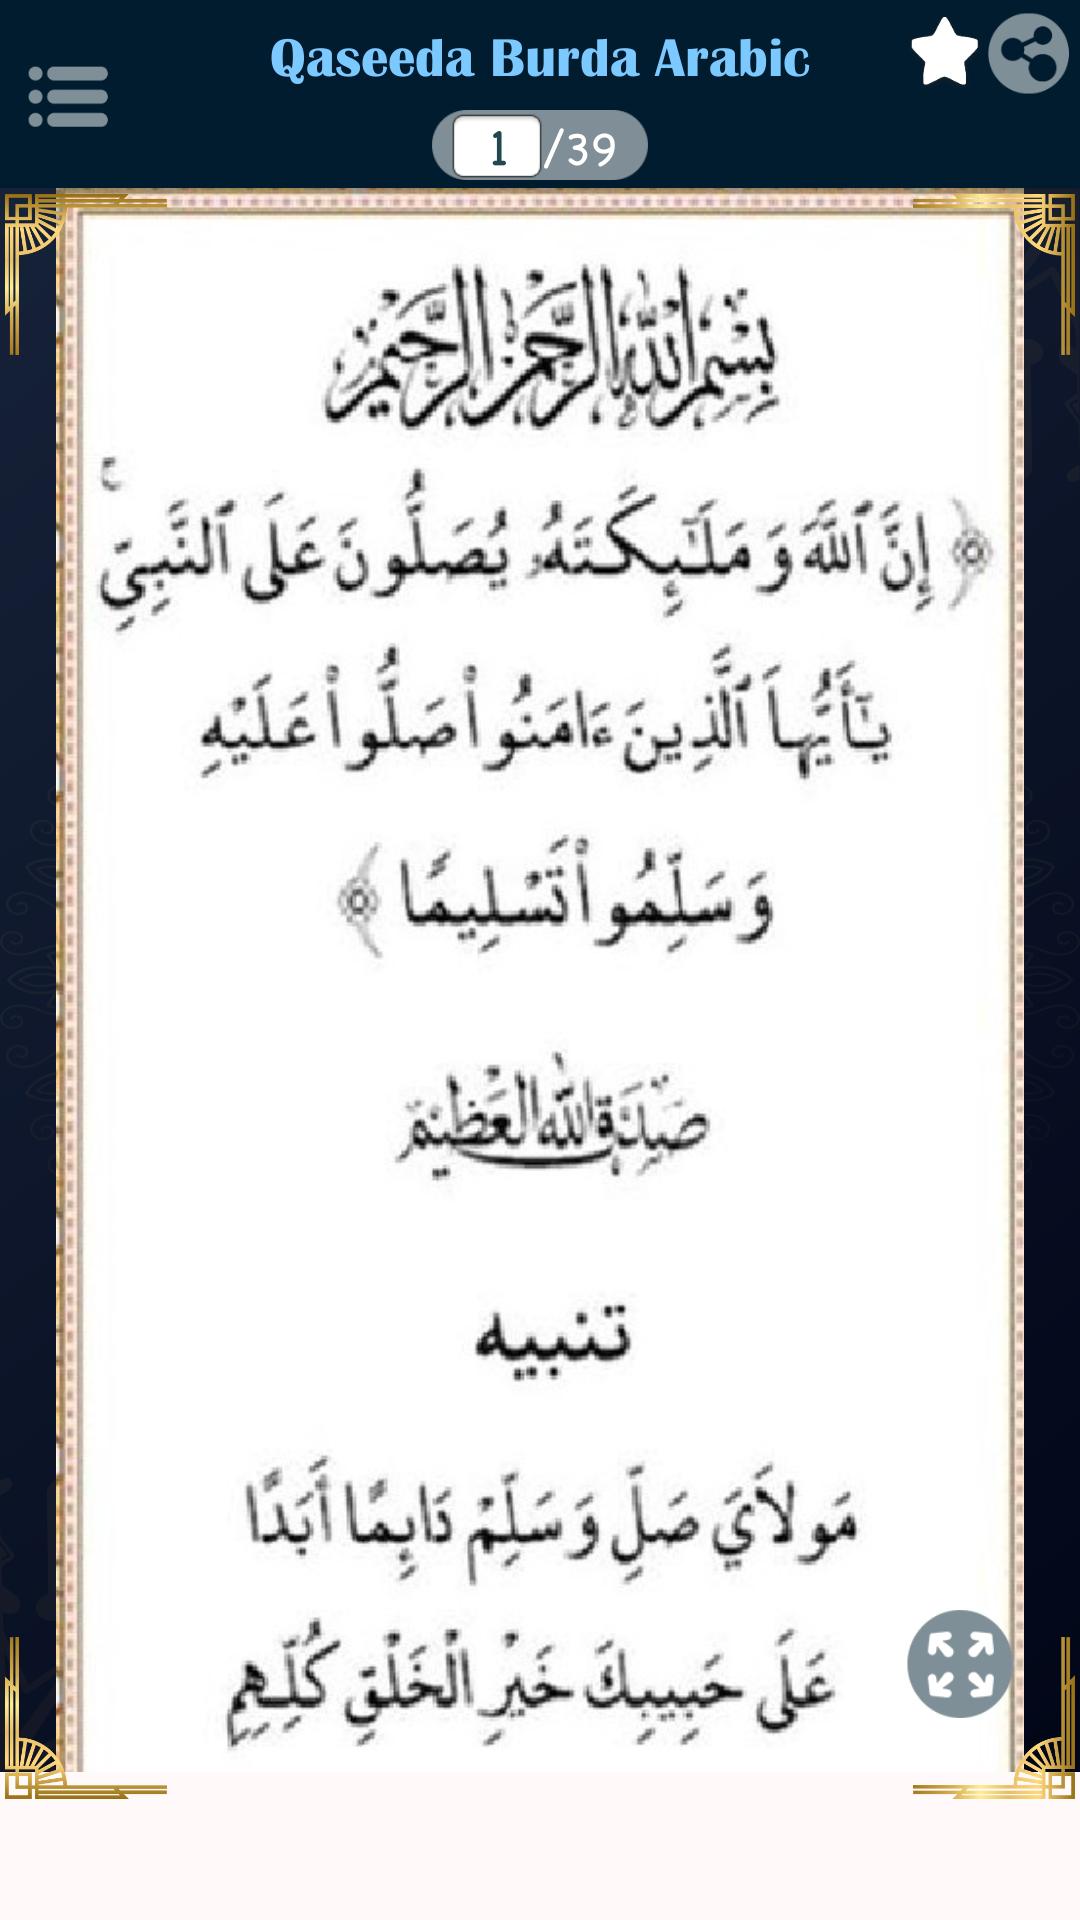 Qaseeda Burda Arabic
1/39
بِسْمِ اللهِ الرَّحْمٰنِ الرَّحِيْمِ
﴿ إِنَّ ٱللَّهَ وَمَلَـٰٓئِكَتَهُۥ يُصَلُّونَ عَلَى ٱلنَّبِىِّ ۚ
يَـٰٓأَيُّهاَ ٱلَّذِينَ ءَامَنُواْ صَلُّواْ عَلَيْهِ
وَسَلِّمُواْ تَسْلِيمًا ﴾
صَدَقَ اللهُ الْعَظِيْمُ
تنبيه
مَولاَيَ صَلِّ وَسَلِّمْ دَائِمًا أَبَدًا
عَلَى حَبِيبِكَ خَيْرِ الْخَلْقِ كُلِّـهِمِ